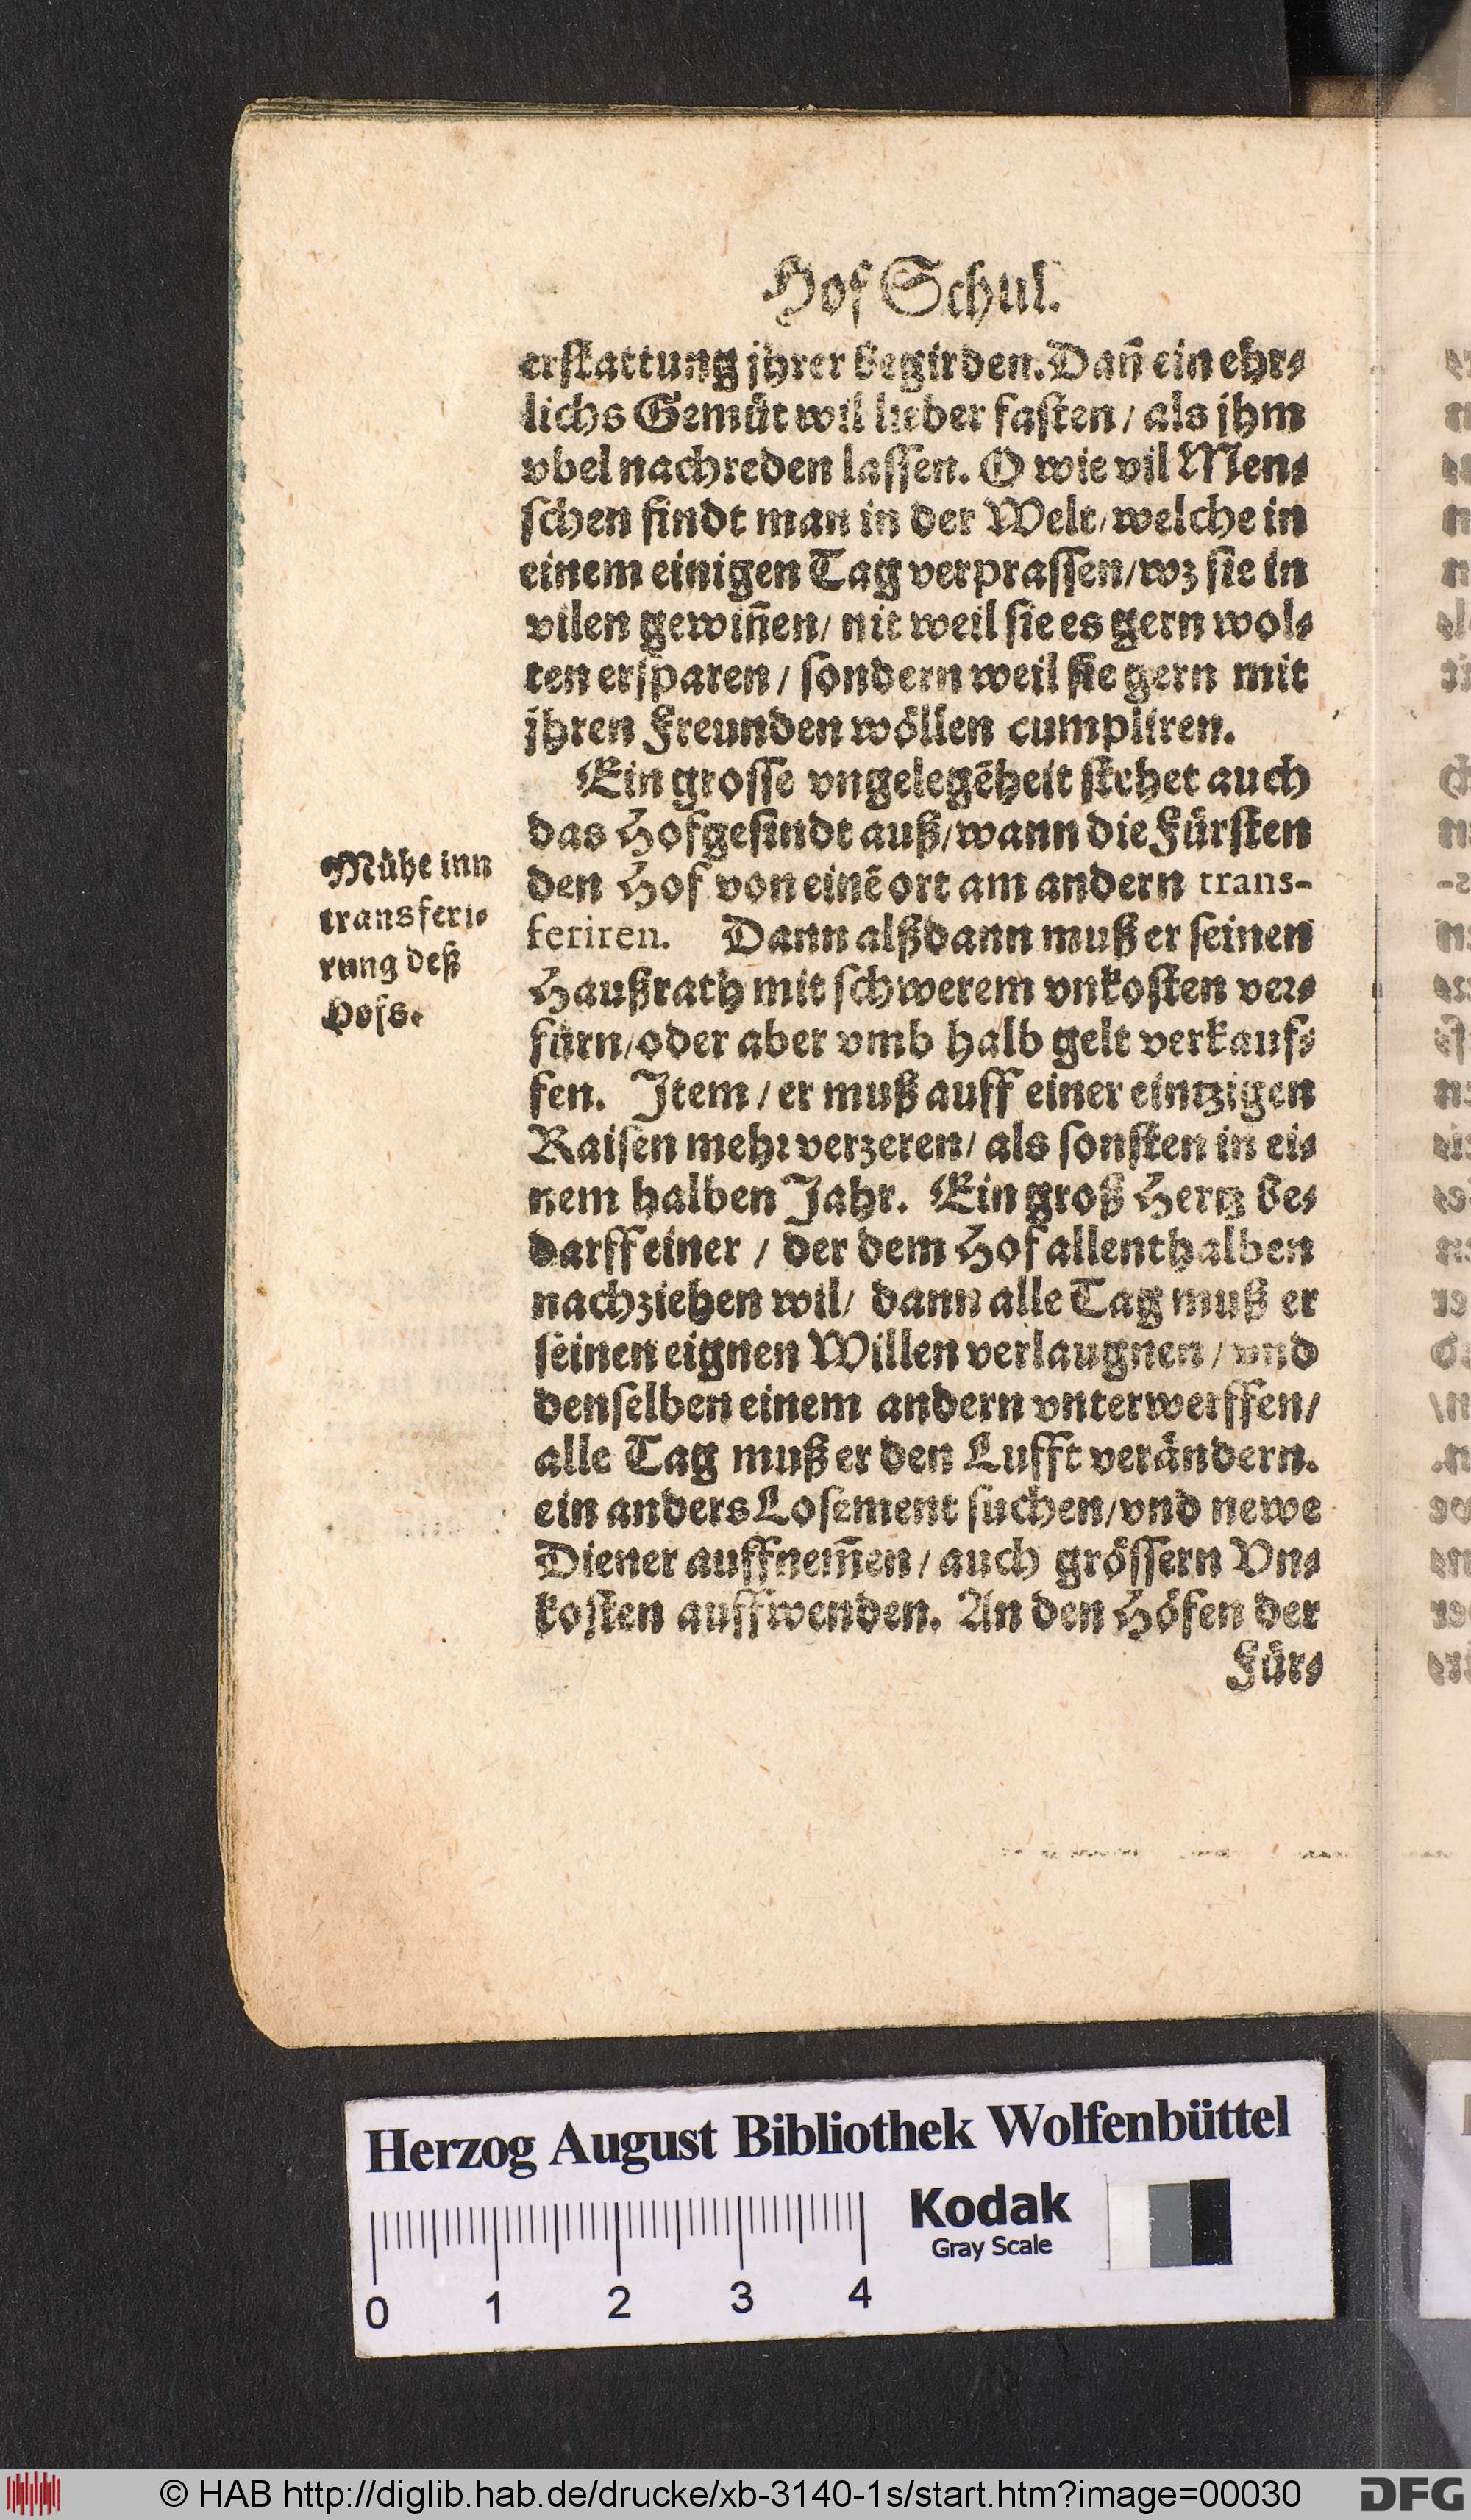 Hof Schul.
erstattung jhrer begirden. Dañ ein ehr⸗
lichs Gemüt wil lieber fasten / als jhm
vbel nachreden lassen. O wie vil Men⸗
schen findt man in der Welt / welche in
einem einigen Tag verprassen / wz sie in
vilen gewiñen / nit weil sie es gern wol⸗
ten ersparen / sondern weil sie gern mit
jhren Freunden wöllen cumpliren.
Ein grosse vngelegēheit stehet auch
das Hofgesindt auß / wann die Fürsten
den Hof von einē ort am andern trans-
feriren. Dann alßdann muß er seinen
Haußrath mit schwerem vnkosten ver⸗
fürn / oder aber vmb halb gelt verkauf⸗
fen. Item / er muß auff einer eintzigen
Raisen mehr verzeren / als sonsten in ei⸗
nem halben Jahr. Ein groß Hertz be⸗
darff einer / der dem Hof allenthalben
nachziehen wil / dann alle Tag muß er
seinen eignen Willen verlaugnen / vnd
denselben einem andern vnterwerffen /
alle Tag muß er den Lufft verändern.
ein anders Losement suchen / vnd newe
Diener auffnem̃en / auch grössern Vn⸗
kosten auffwenden. An den Höfen der
Für⸗
Mühe inn
transferi⸗
rung deß
Hofs.
Herzog August Bibliothek Wolfenbüttel
Kodak
Gray Scale
0 1 2 3 4
© HAB http://diglib.hab.de/drucke/xb-3140-1s/start.htm?image=00030
DFG